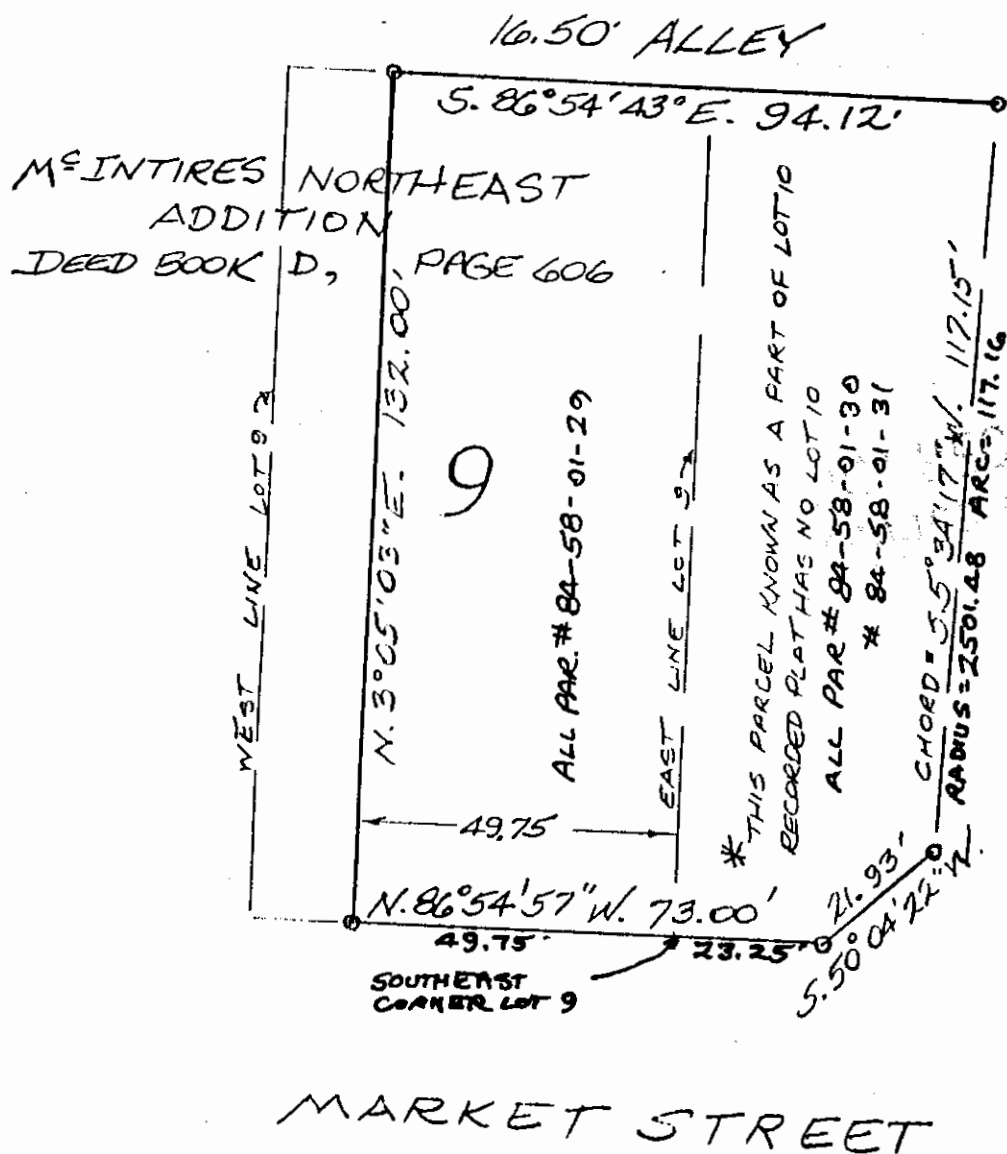 16.50' ALLEY
S. 86°54'43°E. 94.12'
McINTIRES NORTHEAST
ADDITION
DEED BOOK D, PAGE 606
WEST LINE LOT 9
N. 3°05'03"E. 132.00'
9
ALL PAR. # 84-58-01-29
EAST LINE LOT 9
* THIS PARCEL KNOWN AS A PART OF LOT 10
RECORDED PLAT HAS NO LOT 10
ALL PAR # 84-58-01-30
# 84-58-01-31
CHORD = S.5°34'17"W. 117.15'
RADIUS = 2501.48 ARC = 117.16
49.75
N. 86°54'57" W. 73.00'
49.75'
23.25'
21.93'
S. 50°04'22"W.
SOUTHEAST
CORNER LOT 9
MARKET STREET